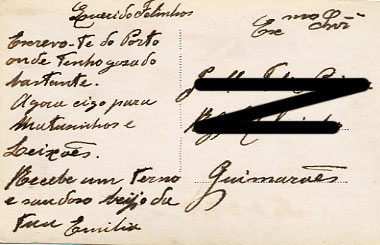 Querido Felinhos
Escrevo-Te do Porto
onde Tenho gozado
bastante.
Agora cigo para
Matuzinhos e
Leixões.
Recebe um Terno
e saudoso beijo da
tua Emilia
Ex mo Snr
Guimarães